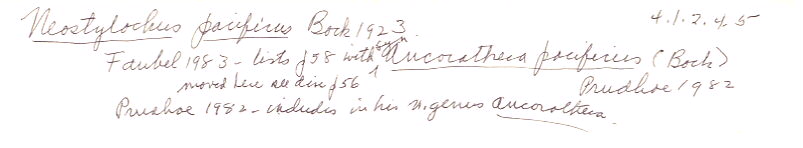 Neostylochus pacificus Bock 1923. 4.1.2.4.5
Faubel 1983 - lists p58 with syn Ancoratheca pacificus (Bock)
moved here see disc p56 Prudhoe 1982
Prudhoe 1982 - includes in his n. genus Ancoratheca.